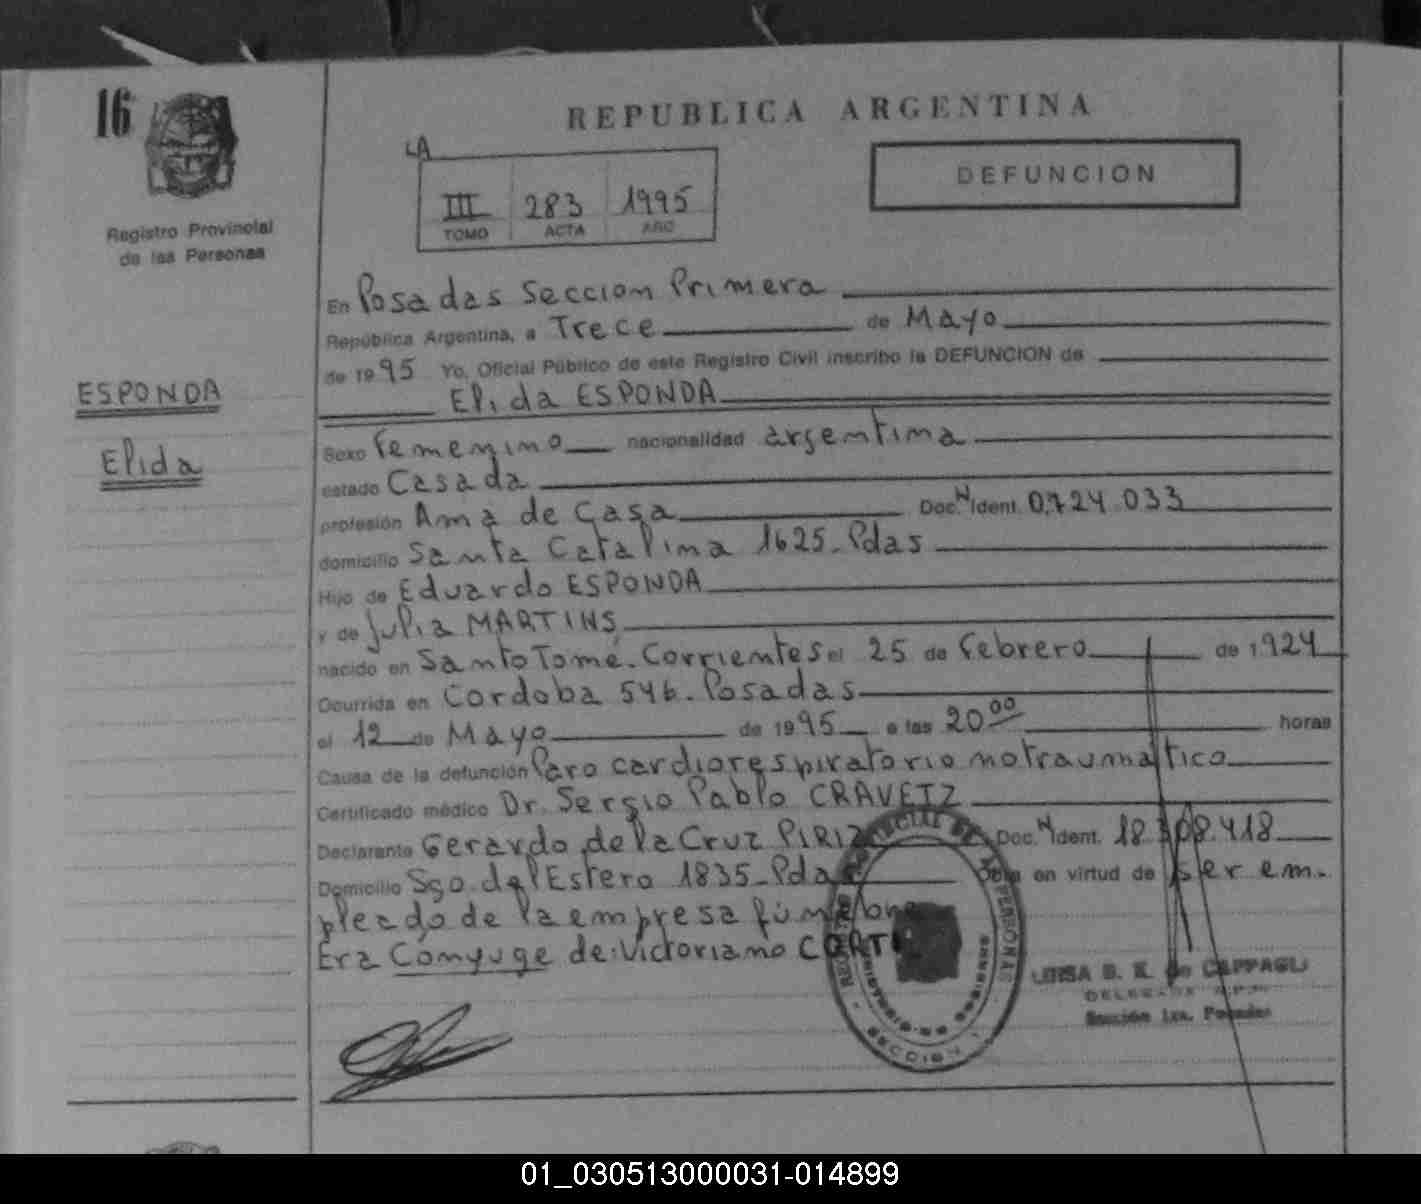 16
Registro Provincial
de las Personas
REPUBLICA ARGENTINA
LA
DEFUNCION
III 283 1995
TOMO ACTA AÑO
En Posadas Seccion Primera
República Argentina, a Trece de Mayo
de 1995 Yo, Oficial Público de este Registro Civil inscribo la DEFUNCION de
Elida ESPONDA
ESPONDA
Elida
Sexo Femenino nacionalidad argentina
estado Casada
profesión Ama de Casa Doc. N Ident. 0.724.033
domicilio Santa Catalina 1625. Pdas
Hijo de Eduardo ESPONDA
y de Julia MARTINS
nacido en Santo Tomé. Corrientes el 25 de Febrero de 1.924
Ocurrida en Cordoba 546. Posadas
el 12 de Mayo de 1995 a las 20 00 horas
Causa de la defunción Paro cardiorespiratorio no traumatico
Certificado médico Dr. Sergio Pablo CRAVETZ
Declarante Gerardo de la Cruz PIRIZ Doc. N Ident. 18.308.418
Domicilio Sgo. del Estero 1835. Pdas Obra en virtud de ser em-
pleado de la empresa fúnebre
Era Conyuge de: Victoriano
REGISTRO PROVINCIAL DE LAS PERSONAS
MINISTERIO DE GOBIERNO
SECCION 1
LUISA B. K. de CAPPAGLI
DELEGADA R.P.P.
Sección 1ra. Posadas
01_030513000031-014899